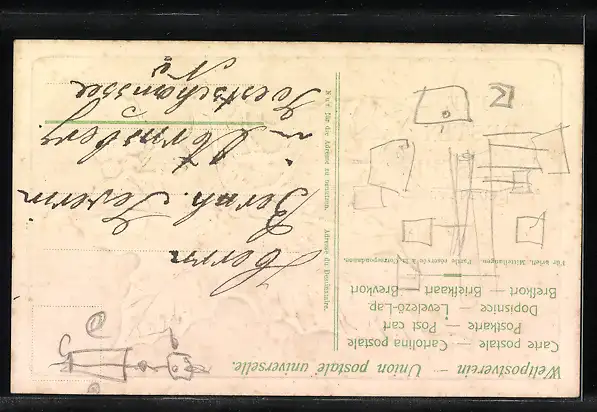 Weltpostverein — Union postale universelle.
Carte postale — Cartolina postale
Postkarte — Post cart
Dopisnice — Levelező-Lap.
Brefkort — Briefkaart — Brevkort
Für schriftl. Mitteilungen. Partie réservée à la Correspondance.
Nur für die Adresse zu benutzen. Adresse du Destinataire.
Herrn
Bernh. Severin
in Arnsberg.
Soestchaussee
No